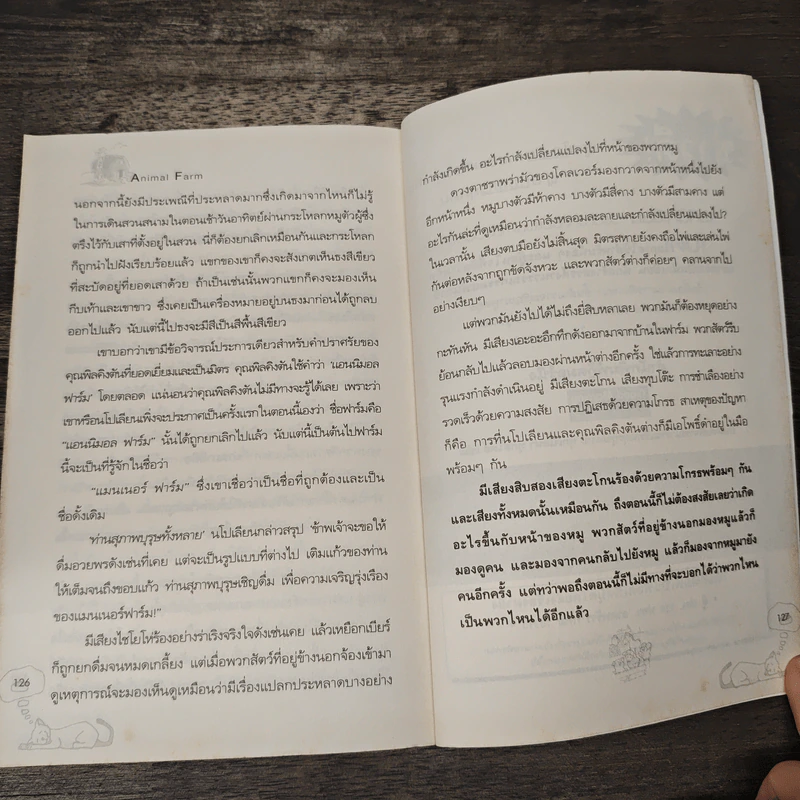 Animal Farm
นอกจากนี้ยังมีประเพณีที่ประหลาดมากซึ่งเกิดมาจากไหนก็ไม่รู้
ในการเดินสวนสนามในตอนเช้าวันอาทิตย์ผ่านกระโหลกหมูตัวผู้ซึ่ง
ตรึงไว้กับเสาที่ตั้งอยู่ในสวน นี่ก็ต้องยกเลิกเหมือนกันและกระโหลก
ก็ถูกนำไปฝังเรียบร้อยแล้ว แขกของเขาก็คงจะสังเกตเห็นธงสีเขียว
ที่สะบัดอยู่ที่ยอดเสาด้วย ถ้าเป็นเช่นนั้นพวกแขกก็คงจะมองเห็น
กีบเท้าและเขาขาว ซึ่งเคยเป็นเครื่องหมายอยู่บนธงมาก่อนได้ถูกลบ
ออกไปแล้ว นับแต่นี้ไปธงจะมีสีเป็นสีพื้นสีเขียว
เขาบอกว่าเขามีข้อวิจารณ์ประการเดียวสำหรับคำปราศรัยของ
คุณพิลคิงตันที่ยอดเยี่ยมและเป็นมิตร คุณพิลคิงตันใช้คำว่า 'แอนนิมอล
ฟาร์ม' โดยตลอด แน่นอนว่าคุณพิลคิงตันไม่มีทางจะรู้ได้เลย เพราะว่า
เขาหรือนโปเลียนเพิ่งจะประกาศเป็นครั้งแรกในตอนนี้เองว่า ชื่อฟาร์มคือ
"แอนนิมอล ฟาร์ม" นั้นได้ถูกยกเลิกไปแล้ว นับแต่นี้เป็นต้นไปฟาร์ม
นี้จะเป็นที่รู้จักในชื่อว่า
"แมนเนอร์ ฟาร์ม" ซึ่งเขาเชื่อว่าเป็นชื่อที่ถูกต้องและเป็น
ชื่อดั้งเดิม
'ท่านสุภาพบุรุษทั้งหลาย' นโปเลียนกล่าวสรุป 'ข้าพเจ้าจะขอให้
ดื่มอวยพรดังเช่นที่เคย แต่จะเป็นรูปแบบที่ต่างไป เติมแก้วของท่าน
ให้เต็มจนถึงขอบแก้ว ท่านสุภาพบุรุษเชิญดื่ม เพื่อความเจริญรุ่งเรือง
ของแมนเนอร์ฟาร์ม!"
มีเสียงไชโยโห่ร้องอย่างร่าเริงจริงใจดังเช่นเคย แล้วเหยือกเบียร์
ก็ถูกยกดื่มจนหมดเกลี้ยง แต่เมื่อพวกสัตว์ที่อยู่ข้างนอกจ้องเข้ามา
ดูเหตุการณ์จะมองเห็นดูเหมือนว่ามีเรื่องแปลกประหลาดบางอย่าง
126
กำลังเกิดขึ้น อะไรกำลังเปลี่ยนแปลงไปที่หน้าของพวกหมู
ดวงตาชราพร่ามัวของโคลเวอร์มองกวาดจากหน้าหนึ่งไปยัง
อีกหน้าหนึ่ง หมูบางตัวมีห้าคาง บางตัวมีสี่คาง บางตัวมีสามคาง แต่
อะไรกันล่ะที่ดูเหมือนว่ากำลังหลอมละลายและกำลังเปลี่ยนแปลงไป?
ในเวลานั้น เสียงตบมือยังไม่สิ้นสุด มิตรสหายยังคงถือไพ่และเล่นไพ่
กันต่อหลังจากถูกขัดจังหวะ และพวกสัตว์ต่างก็ค่อยๆ คลานจากไป
อย่างเงียบๆ
แต่พวกมันยังไปได้ไม่ถึงยี่สิบหลาเลย พวกมันก็ต้องหยุดอย่าง
กะทันหัน มีเสียงเอะอะอึกทึกดังออกมาจากบ้านในฟาร์ม พวกสัตว์รีบ
ย้อนกลับไปแล้วลอบมองผ่านหน้าต่างอีกครั้ง ใช่แล้วการทะเลาะอย่าง
รุนแรงกำลังดำเนินอยู่ มีเสียงตะโกน เสียงทุบโต๊ะ การชำเลืองอย่าง
รวดเร็วด้วยความสงสัย การปฏิเสธด้วยความโกรธ สาเหตุของปัญหา
ก็คือ การที่นโปเลียนและคุณพิลคิงตันต่างก็มีเอโพธิ์ดำอยู่ในมือ
พร้อมๆ กัน
มีเสียงสิบสองเสียงตะโกนร้องด้วยความโกรธพร้อมๆ กัน
และเสียงทั้งหมดนั้นเหมือนกัน ถึงตอนนี้ก็ไม่ต้องสงสัยเลยว่าเกิด
อะไรขึ้นกับหน้าของหมู พวกสัตว์ที่อยู่ข้างนอกมองหมูแล้วก็
มองดูคน และมองจากคนกลับไปยังหมู แล้วก็มองจากหมูมายัง
คนอีกครั้ง แต่ทว่าพอถึงตอนนี้ก็ไม่มีทางที่จะบอกได้ว่าพวกไหน
เป็นพวกไหนได้อีกแล้ว
127